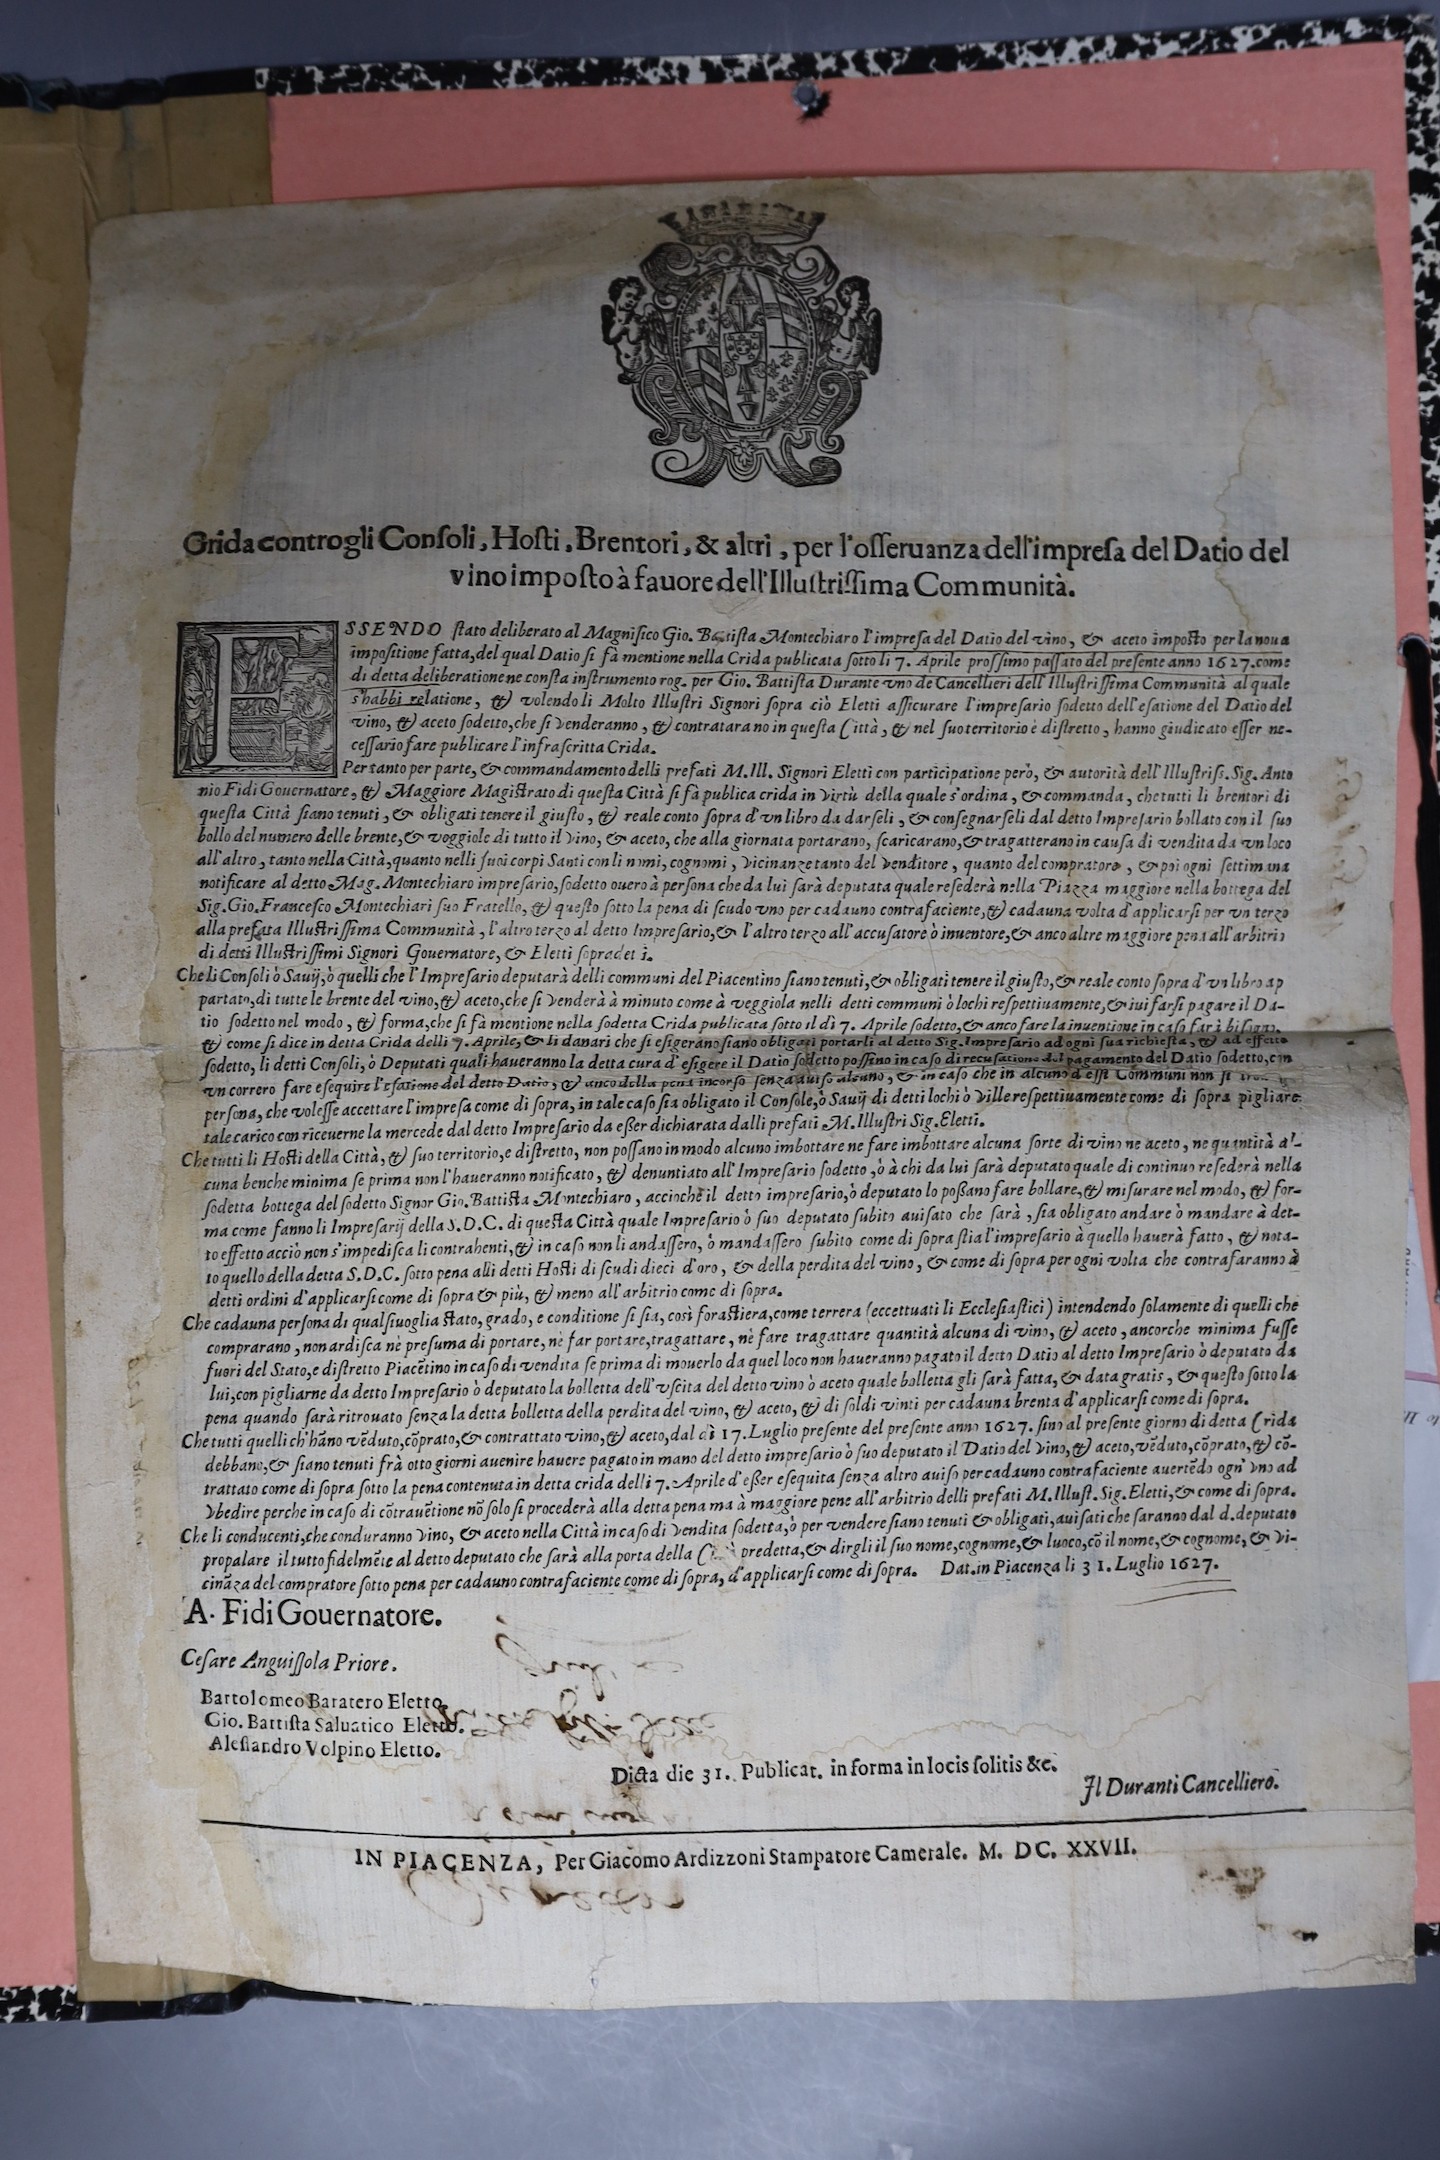 Grida contro gli Conſoli, Hoſti, Brentori, & altri, per l'oſſeruanza dell'impreſa del Datio del
vino impoſto à fauore dell'Illuſtriſſima Communità.
ESSENDO ſtato deliberato al Magnifico Gio. Battiſta Montechiaro l'impreſa del Datio del vino, & aceto impoſto per la noua
impoſitione fatta, del qual Datio ſi fà mentione nella Crida publicata ſotto li 7. Aprile proſſimo paſſato del preſente anno 1627. come
di detta deliberatione ne conſta inſtrumento rog. per Gio. Battiſta Durante vno de Cancellieri dell'Illuſtriſſima Communità al quale
s'habbi relatione, & volendo li Molto Illuſtri Signori ſopra ciò Eletti aſſicurare l'impreſario ſodetto dell'eſatione del Datio del
vino, & aceto ſodetto, che ſi venderanno, & contratarano in queſta Città, & nel ſuo territorio è diſtretto, hanno giudicato eſſer ne-
ceſſario fare publicare l'infraſcritta Crida.
Per tanto per parte, & commandamento delli prefati M. Ill. Signori Eletti con participatione però, & autorità dell'Illuſtriſs. Sig. Anto
nio Fidi Gouernatore, & Maggiore Magiſtrato di queſta Città ſi fà publica crida in virtù della quale s'ordina, & commanda, che tutti li brentori di
queſta Città ſiano tenuti, & obligati tenere il giuſto, & reale conto ſopra d'vn libro da darſeli, & conſegnarſeli dal detto Impreſario bollato con il ſuo
bollo del numero delle brente, & veggiole di tutto il vino, & aceto, che alla giornata portarano, ſcaricarano, & tragatterano in cauſa di vendita da vn loco
all'altro, tanto nella Città, quanto nelli ſuoi corpi Santi con li nomi, cognomi, vicinanze tanto del venditore, quanto del compratore, & poi ogni ſettimana
notificare al detto Mag. Montechiaro impreſario, ſodetto ouero à perſona che da lui ſarà deputata quale reſederà nella Piazza maggiore nella bottega del
Sig. Gio. Franceſco Montechiari ſuo Fratello, & queſto ſotto la pena di ſcudo vno per cadauno contrafaciente, & cadauna volta d'applicarſi per vn terzo
alla prefata Illuſtriſſima Communità, l'altro terzo al detto Impreſario, & l'altro terzo all'accuſatore ò inuentore, & anco altre maggiore pena all'arbitrio
di detti Illuſtriſſimi Signori Gouernatore, & Eletti ſopradeti.
Che li Conſoli ò Sauij, ò quelli che l'Impreſario deputarà delli communi del Piacentino ſiano tenuti, & obligati tenere il giuſto, & reale conto ſopra d'vn libro ap
partato, di tutte le brente del vino, & aceto, che ſi venderà à minuto come à veggiola nelli detti communi ò lochi reſpettiuamente, & iui farſi pagare il Da-
tio ſodetto nel modo, & forma, che ſi fà mentione nella ſodetta Crida publicata ſotto il dì 7. Aprile ſodetto, & anco fare la inuentione in caſo farà biſogno,
& come ſi dice in detta Crida delli 7. Aprile, & li danari che ſi eſigerano ſiano obligati portarli al detto Sig. Impreſario ad ogni ſua richieſta, & ad effetto
ſodetto, li detti Conſoli, ò Deputati quali haueranno la detta cura d'eſigere il Datio ſodetto poſſino in caſo di recuſatione del pagamento del Datio ſodetto, con
vn correro fare eſequire l'eſatione del detto Datio, & anco della pena incorſo ſenza auiſo alcuno, & in caſo che in alcuno d'eſſi Communi non ſi
perſona, che voleſſe accettare l'impreſa come di ſopra, in tale caſo ſia obligato il Conſole, ò Sauij di detti lochi ò ville reſpettiuamente come di ſopra pigliare
tale carico con riceuerne la mercede dal detto Impreſario da eßer dichiarata dalli prefati M. Illuſtri Sig. Eletti.
Che tutti li Hoſti della Città, & ſuo territorio, e diſtretto, non poſſano in modo alcuno imbottare ne fare imbottare alcuna ſorte di vino ne aceto, ne quantità al-
cuna benche minima ſe prima non l'haueranno notificato, & denuntiato all'Impreſario ſodetto, ò à chi da lui ſarà deputato quale di continuo reſederà nella
ſodetta bottega del ſodetto Signor Gio. Battiſta Montechiaro, acciochè il detto impreſario, ò deputato lo poßano fare bollare, & miſurare nel modo, & for-
ma come fanno li Impreſarij della S.D.C. di queſta Città quale Impreſario ò ſuo deputato ſubito auiſato che ſarà, ſia obligato andare ò mandare à det-
to effetto acciò non s'impediſca li contrahenti, & in caſo non li andaſſero, ò mandaſſero ſubito come di ſopra ſtia l'impreſario à quello hauerà fatto, & nota-
to quello della detta S.D.C. ſotto pena alli detti Hoſti di ſcudi dieci d'oro, & della perdita del vino, & come di ſopra per ogni volta che contrafaranno à
detti ordini d'applicarſi come di ſopra & più, & meno all'arbitrio come di ſopra.
Che cadauna perſona di qualſiuoglia ſtato, grado, e conditione ſi ſia, così foraſtiera, come terrera (eccettuati li Eccleſiaſtici) intendendo ſolamente di quelli che
comprarano, non ardiſca nè preſuma di portare, nè far portare, tragattare, nè fare tragattare quantità alcuna di vino, & aceto, ancorche minima fuſſe
fuori del Stato, e diſtretto Piacẽtino in caſo di vendita ſe prima di mouerlo da quel loco non haueranno pagato il detto Datio al detto Impreſario ò deputato da
lui, con pigliarne da detto Impreſario ò deputato la bolletta dell'vſcita del detto vino ò aceto quale bolletta gli ſarà fatta, & data gratis, & queſto ſotto la
pena quando ſarà ritrouato ſenza la detta bolletta della perdita del vino, & aceto, & di ſoldi vinti per cadauna brenta d'applicarſi come di ſopra.
Che tutti quelli ch'hãno vẽduto, cõprato, & contrattato vino, & aceto, dal dì 17. Luglio preſente del preſente anno 1627. ſino al preſente giorno di detta Crida
debbano, & ſiano tenuti frà otto giorni auenire hauere pagato in mano del detto impreſario ò ſuo deputato il Datio del vino, & aceto, vẽduto, cõprato, & cõ-
trattato come di ſopra ſotto la pena contenuta in detta crida delli 7. Aprile d'eßer eſequita ſenza altro auiſo per cadauno contrafaciente auertẽdo ogn'vno ad
vbedire perche in caſo di cõtrauẽtione nõ ſolo ſi procederà alla detta pena ma à maggiore pene all'arbitrio delli prefati M. Illuſt. Sig. Eletti, & come di ſopra.
Che li conducenti, che conduranno vino, & aceto nella Città in caſo di vendita ſodetta, ò per vendere ſiano tenuti & obligati, auiſati che ſaranno dal d. deputato
propalare il tutto fidelmẽte al detto deputato che ſarà alla porta della Città predetta, & dirgli il ſuo nome, cognome, & luoco, cõ il nome, & cognome, & vi-
cinãza del compratore ſotto pena per cadauno contrafaciente come di ſopra, d'applicarſi come di ſopra. Dat. in Piacenza li 31. Luglio 1627.
A. Fidi Gouernatore.
Ceſare Anguiſſola Priore.
Bartolomeo Baratero Eletto.
Gio. Battiſta Saluatico Eletto.
Aleſſandro Volpino Eletto.
Dicta die 31. Publicat. in forma in locis ſolitis &c.
Il Duranti Cancelliero.
IN PIACENZA, Per Giacomo Ardizzoni Stampatore Camerale. M. DC. XXVII.